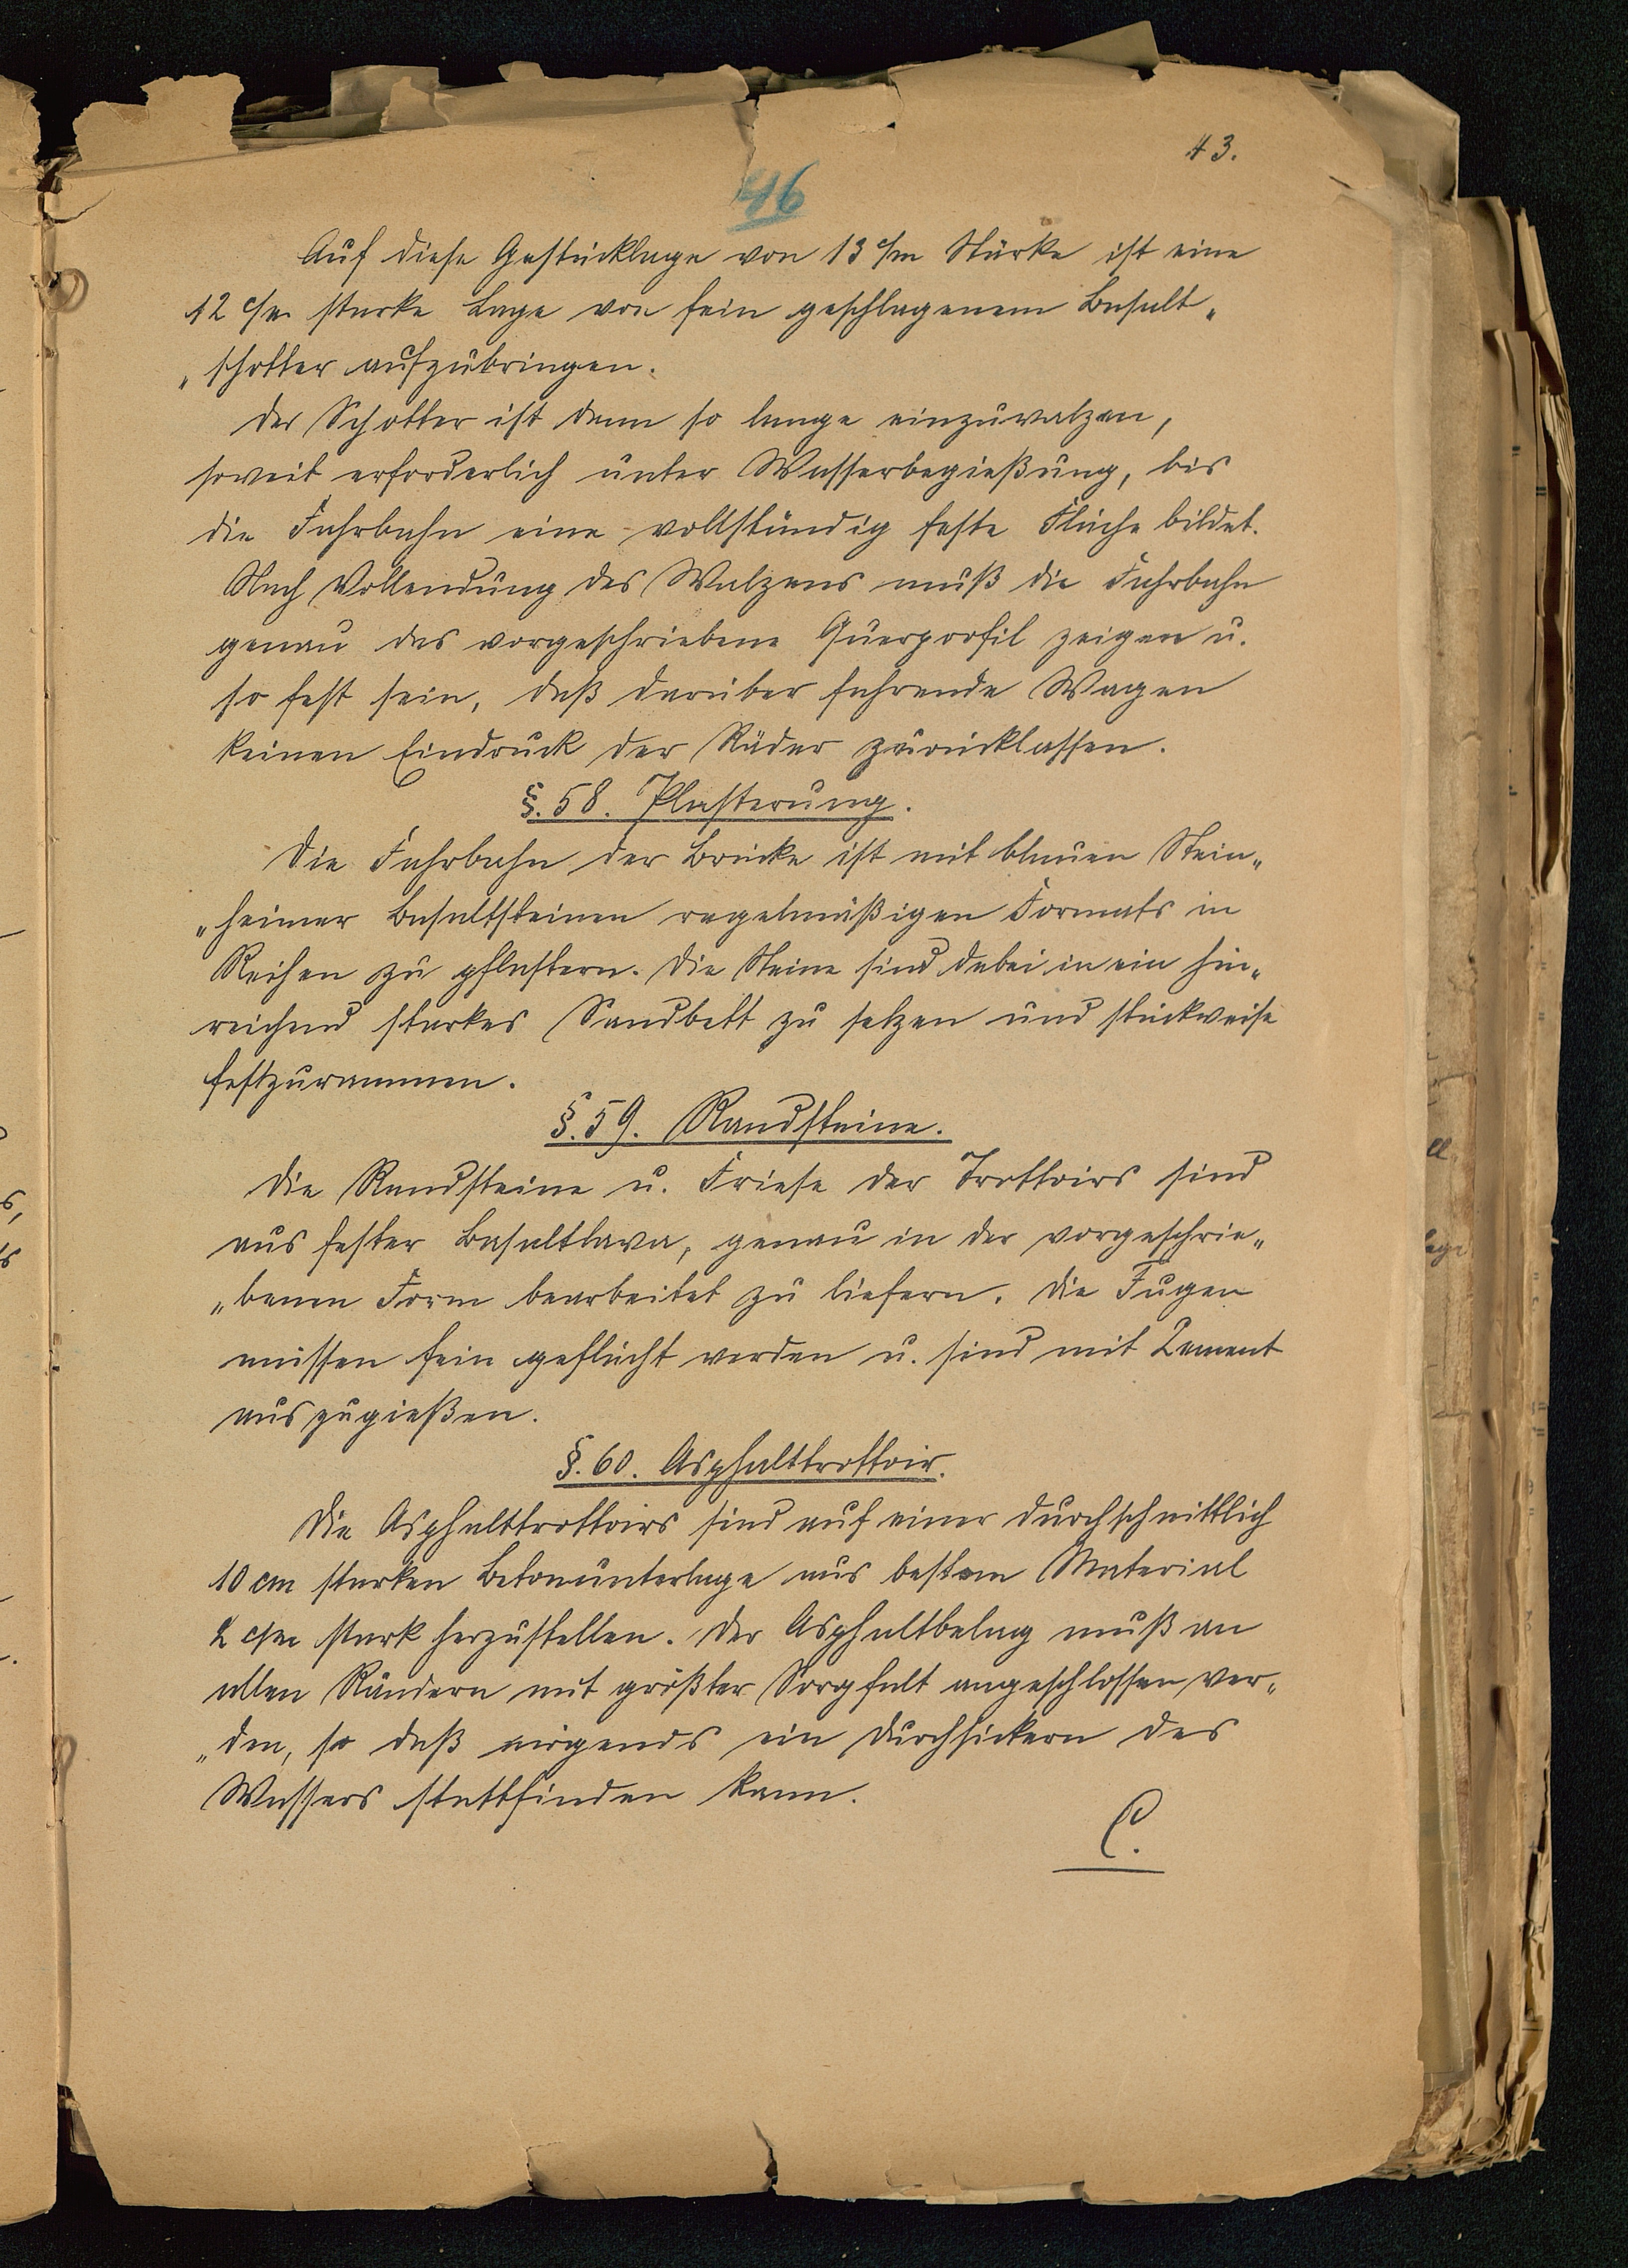 43.
46
Auf diese Gestücklage von 13 c/m Stärke ist eine
12 c/m starke Lage von fein geschlagenem Basalt„
„schotter aufzubringen.
Der Schotter ist dann so lange einzuwalzen,
soweit erforderlich unter Wasserbegießung, bis
die Fahrbahn eine vollständig feste Fläche bildet.
Nach Vollendung des Walzens muß die Fahrbahn
genau das vorgeschriebene Querprofil zeigen u.
so fest sein, daß darüber fahrende Wagen
keinen Eindruck der Räder zurücklassen.
§. 58. Plasterung.
Die Fahrbahn der Brücke ist mit blauen Stein„
„heimer Basaltsteinen regelmäßigen Formats in
Reihen zu pflastern. Die Steine sind dabei in ein hin„
reichend starkes Sandbett zu setzen und stückweise
festzurammen.
§. 59. Randsteine.
Die Randsteine u. Friese der Trottoirs sind
aus fester Basaltlava, genau in der vorgeschrie„
„benen Form bearbeitet zu liefern. Die Fugen
müssen fein geflächt werden u. sind mit Zement
auszugießen.
§. 60. Asphalttrottoir.
Die Asphalttrottoirs sind auf einer durchschnittlich
10 cm starken Betonunterlage aus bestem Material
2 c/m stark herzustellen. Der Asphaltbelag muß an
allen Rändern mit größter Sorgfalt angeschlossen wer„
„den, so daß nirgends ein Durchsickern des
Wassers stattfinden kann.
C.